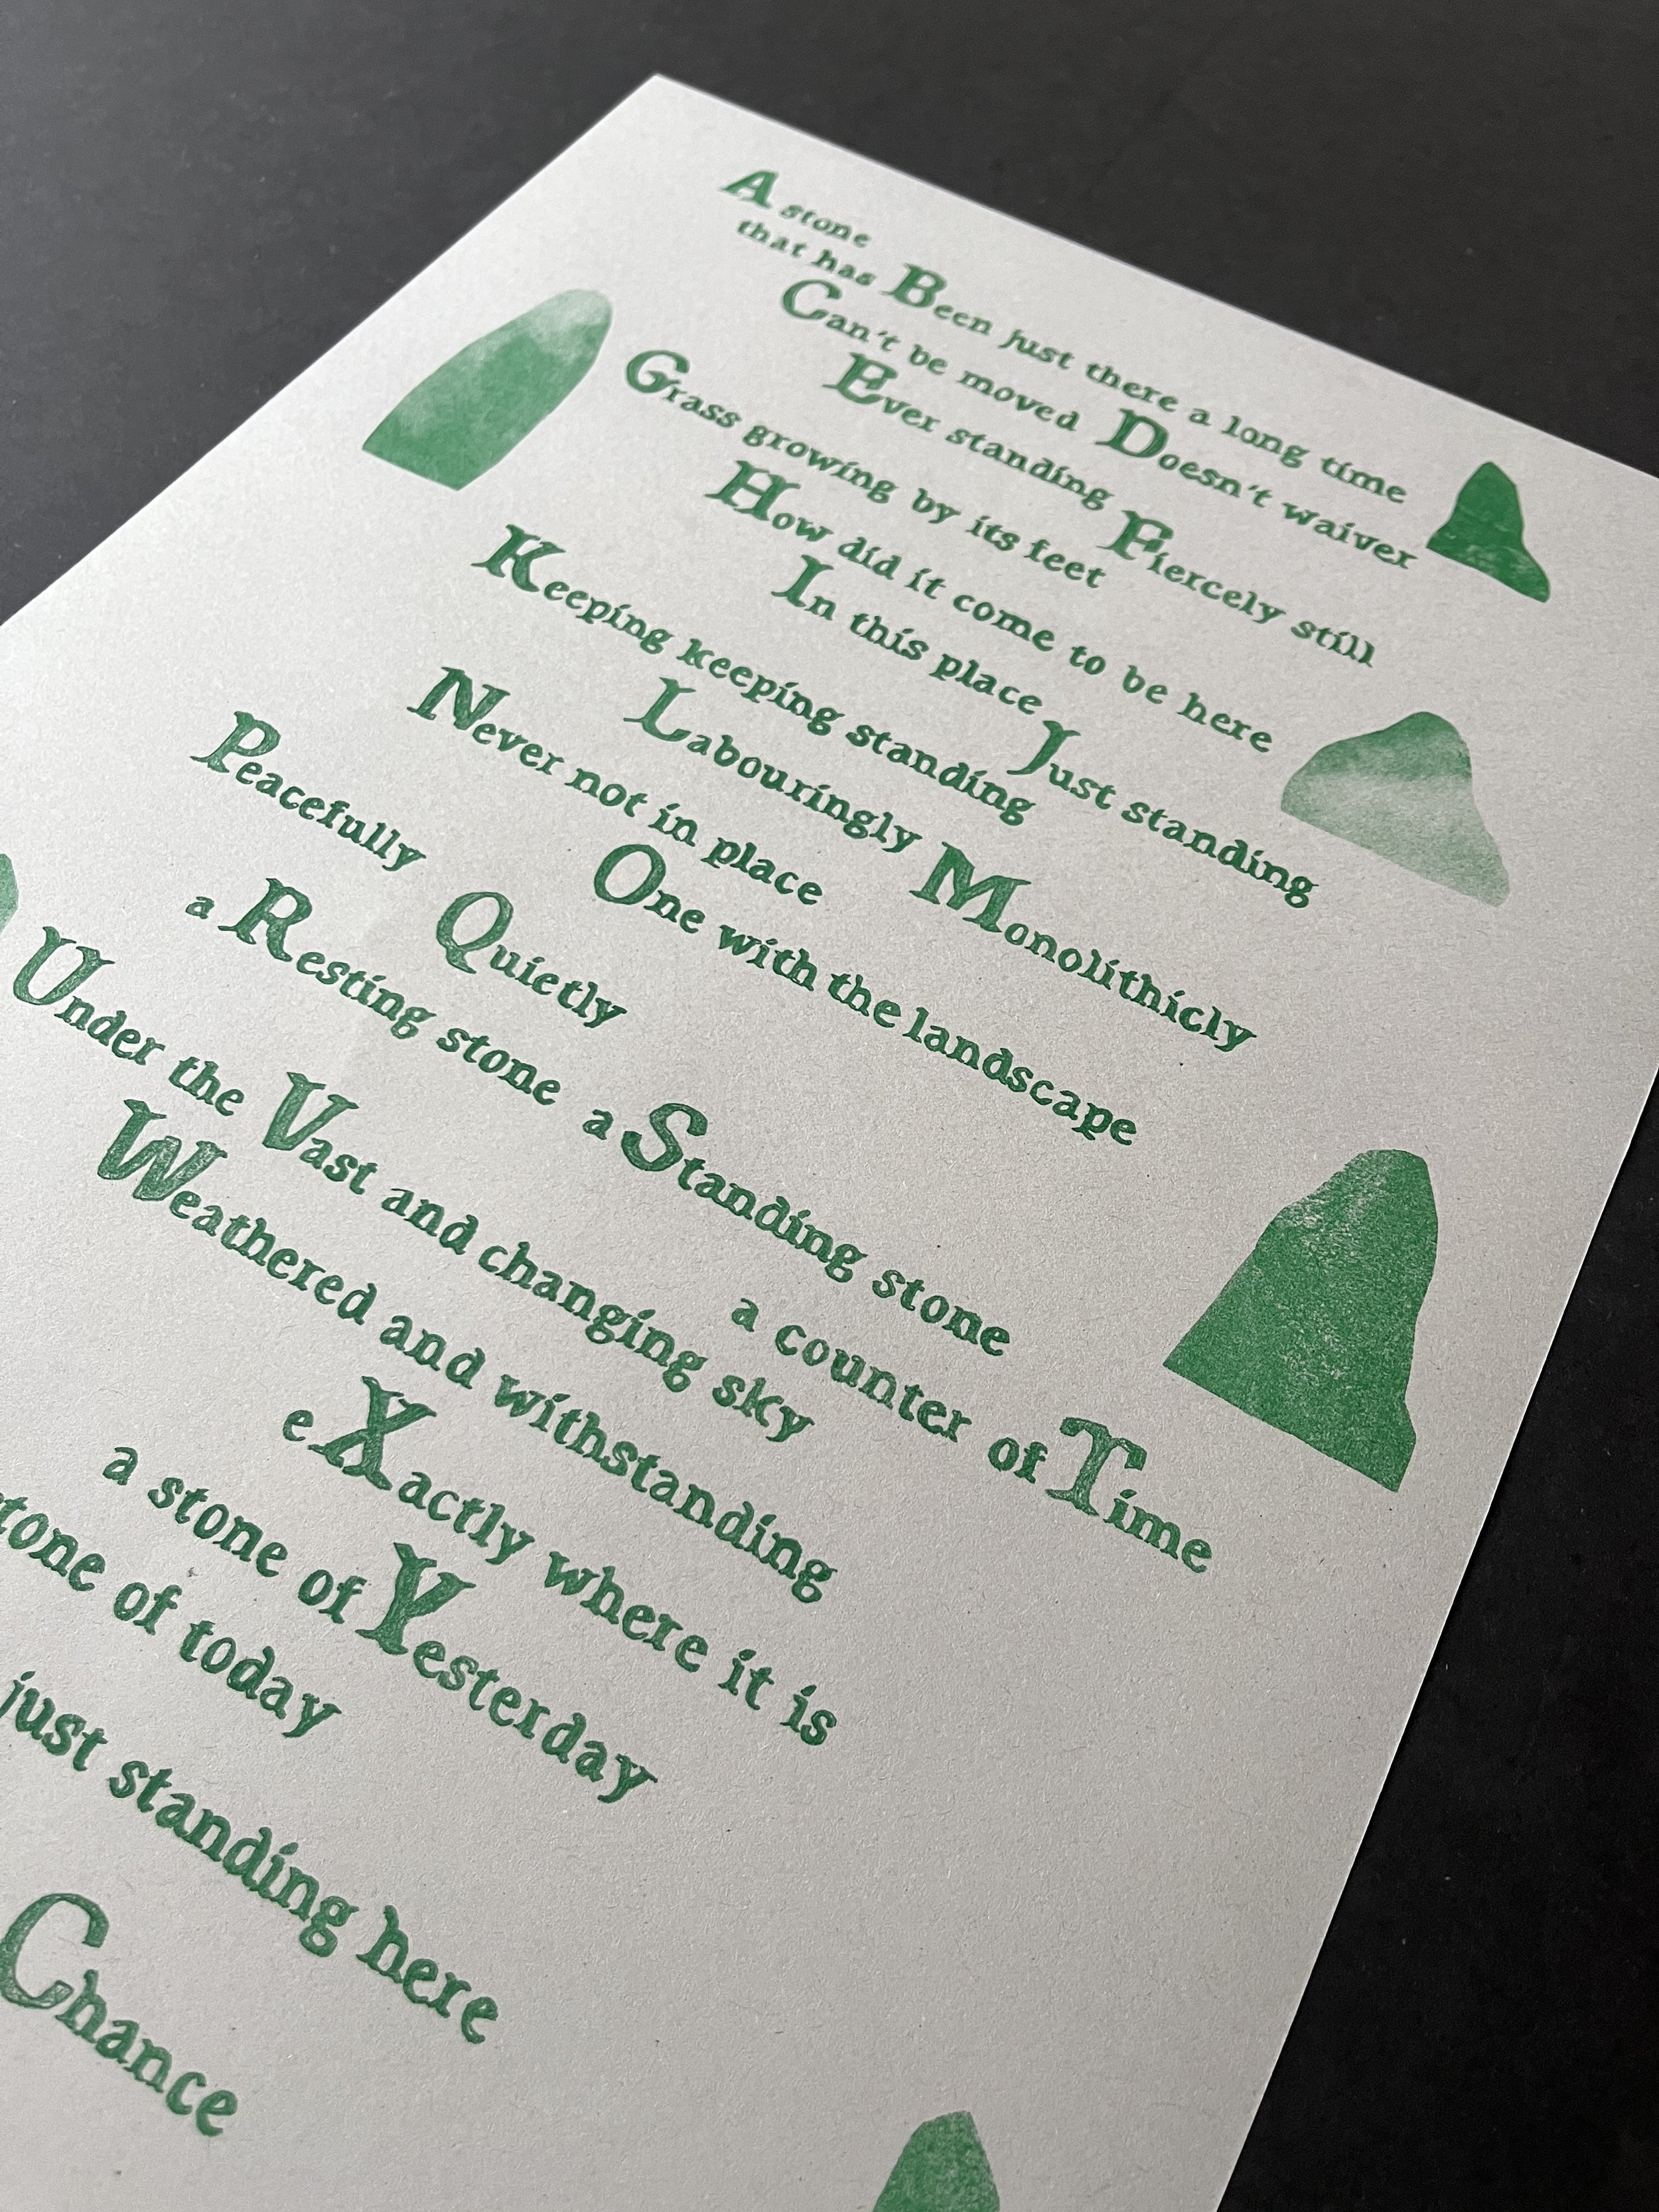 A stone
that has Been just there a long time
Can't be moved Doesn't waiver
Ever standing Fiercely still
Grass growing by its feet
How did it come to be here
In this place Just standing
Keeping keeping standing
Labouringly Monolithicly
Never not in place
One with the landscape
Peacefully Quietly
a Resting stone a Standing stone
a counter of Time
Under the Vast and changing sky
Weathered and withstanding
eXactly where it is
a stone of Yesterday
of today
just standing here
Chance